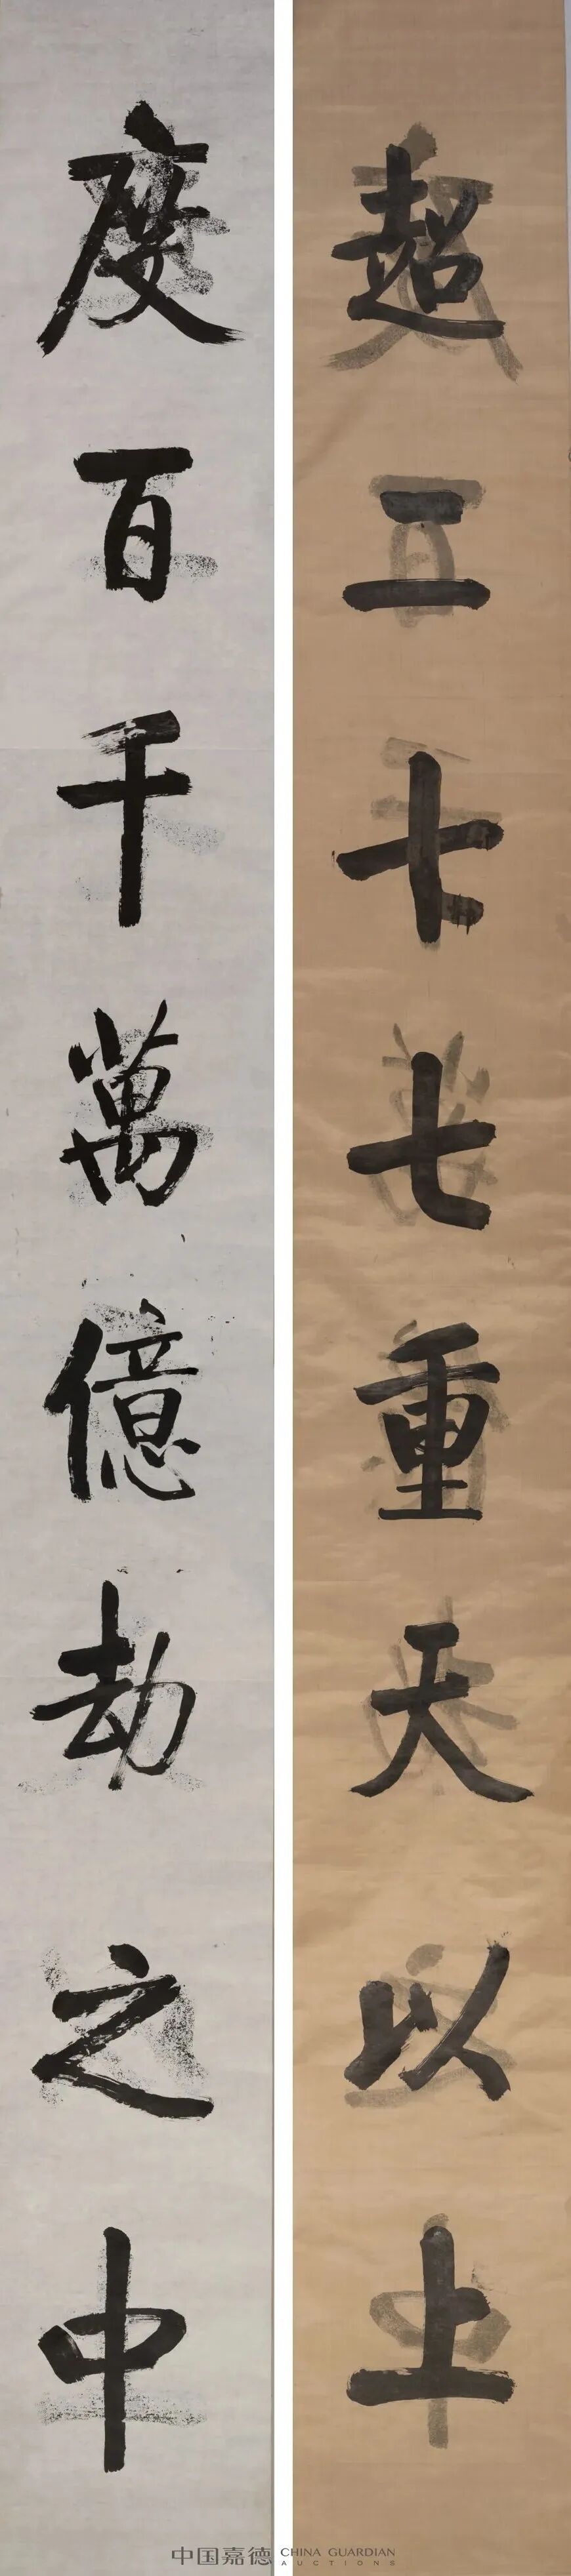 超二十七重天以上
度百千萬億劫之中
中国嘉德 CHINA GUARDIAN
AUCTIONS